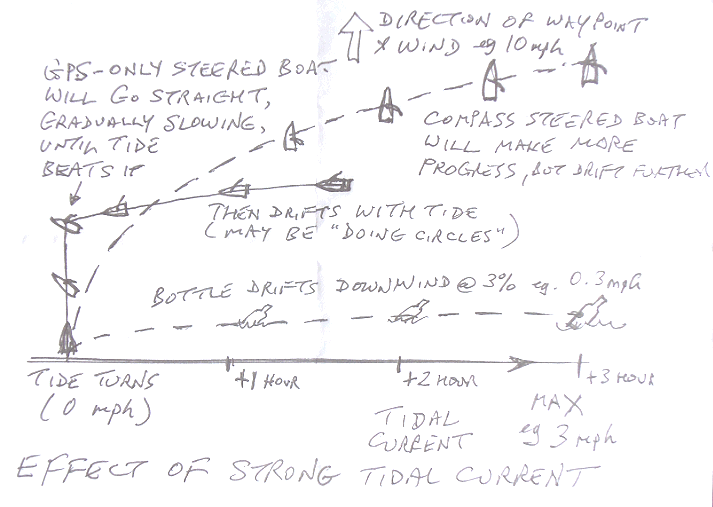 DIRECTION OF WAYPOINT
& WIND eg 10mph
GPS-ONLY STEERED BOAT
WILL GO STRAIGHT,
GRADUALLY SLOWING,
UNTIL TIDE
BEATS IT
COMPASS STEERED BOAT
WILL MAKE MORE
PROGRESS, BUT DRIFT FURTHER
THEN DRIFTS WITH TIDE
(MAY BE "DOING CIRCLES")
BOTTLE DRIFTS DOWNWIND @ 3% eg. 0.3mph
TIDE TURNS
(0 mph)
+1 HOUR
+2 HOUR
+3 HOUR
TIDAL
CURRENT
MAX
eg 3mph
EFFECT OF STRONG TIDAL CURRENT